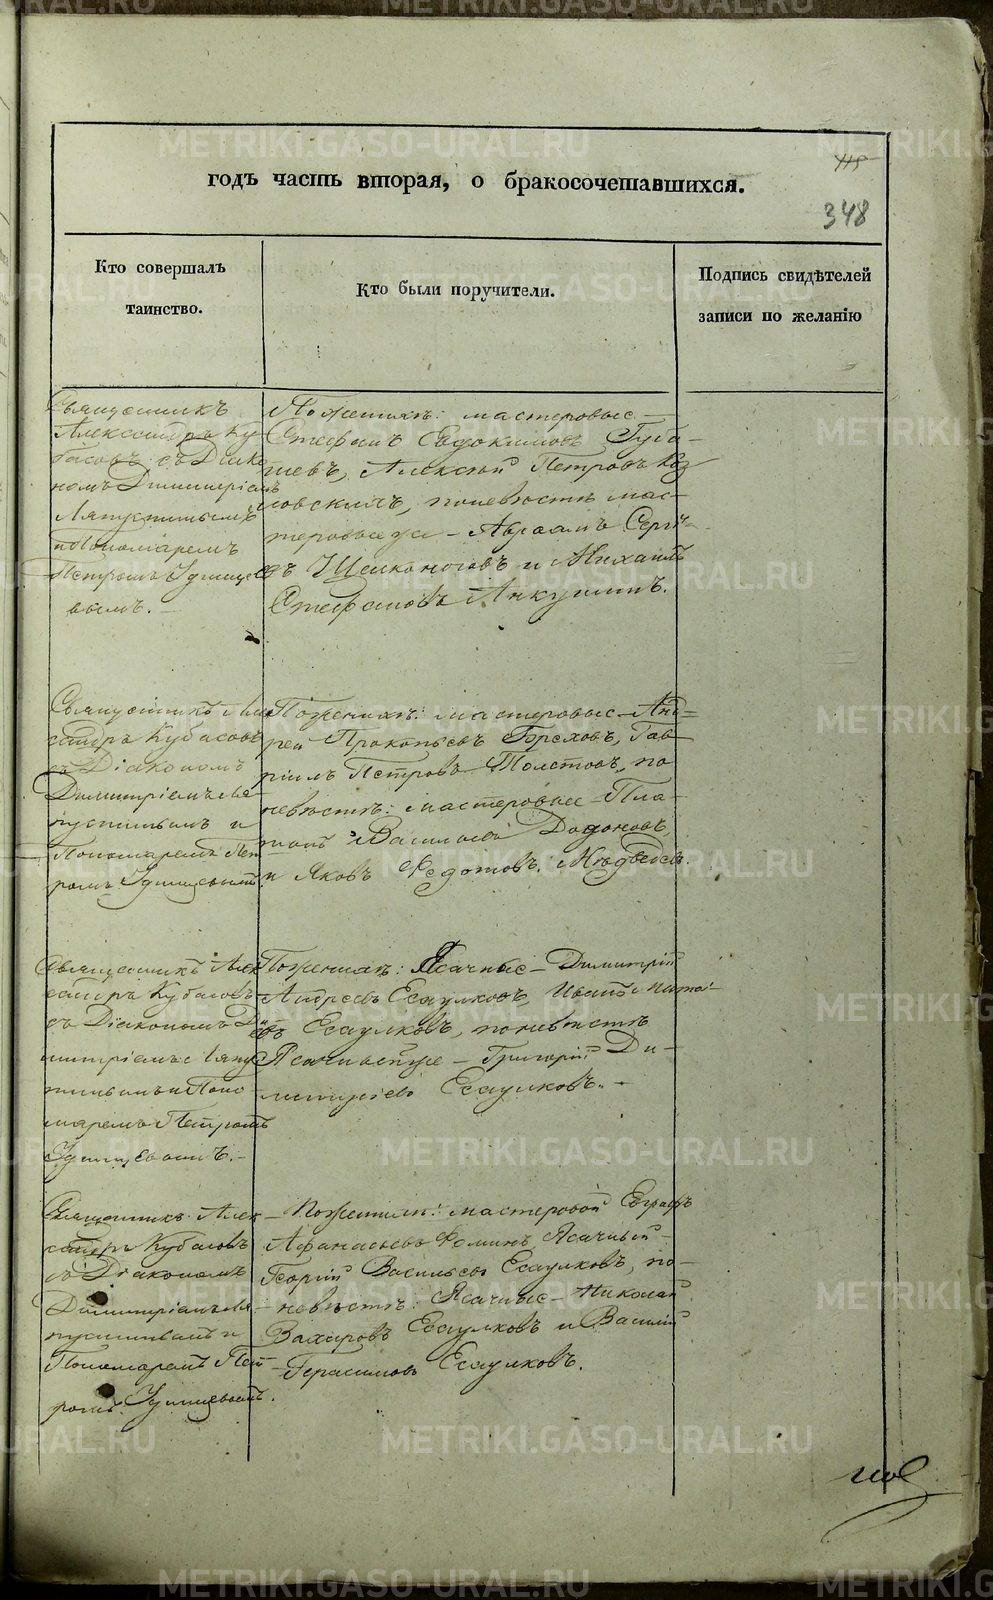 115
годъ часть вторая, о бракосочетавшихся.
348
Кто совершалъ
таинство.
Кто были поручители.
Подпись свидѣтелей
записи по желанію
Священникъ
Александръ Ку-
басовъ съ Діако-
номъ Димитріемъ
Ляпустинымъ
и Пономаремъ
Петромъ Удинце-
вымъ.
По женихѣ: мастеровые
Стефанъ Евдокимовъ
Алексѣй Петровъ Коз
ловскихъ, по невѣстѣ мас-
тероваго Авраамъ Сергѣ-
въ Щелконоговъ и Михаилъ
Стефановъ Анкушинъ.
Священникъ Алек
сандръ Кубасовъ
съ Діакономъ
Димитріемъ Ля-
пустинымъ и
Пономаремъ Пет
ромъ Удинцевымъ
По женихѣ: мастеровые Анд-
рей Прокопьевъ Гореховъ, Гав-
ріилъ Петровъ Толстовъ, по
невѣстѣ: мастеровые Пла-
тонъ Васильевъ Додоновъ,
и Яковъ Федотовъ Медведевъ.
Священникъ Алек
сандръ Кубасовъ
съ Діакономъ Ди
митріемъ Ляпу
стинымъ и Поно-
маремъ Петромъ
Удинцевымъ.
По женихѣ: Ясачные Димитрій
Андреевъ Есаулковъ, Иванъ
Есаулковъ, по невѣстѣ
Ясачные же Григорій Ди-
митріевъ Есаулковъ.
Священникъ Алек
сандръ Кубасовъ
съ Діакономъ
Димитріемъ Ля-
пустинымъ и
Пономаремъ Пет-
ромъ Удинцевымъ.
По женихѣ: мастеровой Евграфъ
Афанасьевъ Фоминъ, Ясачный
Георгій Васильевъ Есаулковъ, по
невѣстѣ: Ясачные Николай
Захаровъ Есаулковъ и Василій
Герасимовъ Есаулковъ.
METRIKI.GASO-URAL.RU